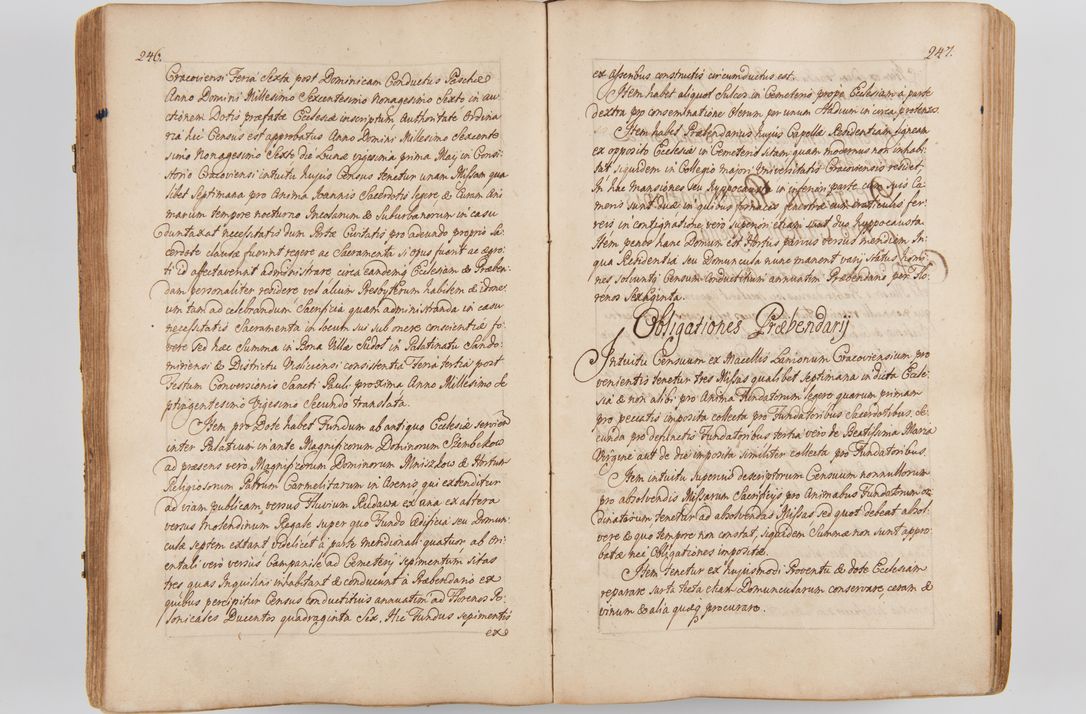 246.
Cracoviensi Feria Sexta post Dominicam Conductus Paschæ
Anno Domini Millesimo Sexcentesimo Nonagesimo Sexto in au
ctionem Dotis præfatæ Ecclesiæ inscriptum Authoritate Ordina
ria hic Census est approbatus Anno Domini Millesimo Sexcente
simo Nonagesimo Sexto die Lunæ vigesima prima Maij in Consi
storio Cracoviensi intuitu hujus Census tenetur unam Missam qua
libet Septimana pro Anima Joannis Sacerdotis legere & Curam Ani
marum tempore nocturno Incolarum & Suburbanorum in casu
duntaxat necessitatis dum Portæ Civitatis pro adeundo proprio Sa
cerdote clausæ fuerint regere ac Sacramenta si opus fuerit ac ægro
ti id affectaverint administrare circa eandem Ecclesiam & Præben
dam personaliter residere vel alium Presbyterum habilem & idone
um tam ad celebrandum Sacrificia quam administranda in casu
necessitatis Sacramenta in locum sui sub onere conscientiæ fo
vere sed hæc Summa in Bona Villæ Sudoł in Palatinatu Sando
miriensi & Districtu Visliciensi consistentia Feria tertia post
Festum Conversionis Sancti Pauli proxima Anno Millesimo Se
ptingentesimo Vigesimo Secundo translata.
Item pro Dote habet Fundum ab antiquo Ecclesiæ servien
inter Palatium in ante Magnificorum Dominorum Szembekow
ad præsens vero Magnificorum Dominorum Mniszkois & Hortum
Religiosorum Patrum Carmelitarum in Arenis qui extenditur
ad viam publicam versus Fluvium Rudawa ex una ex altera
versus Molendinum Regale super quo Fundo ædificia seu Domun
culæ septem extant videlicet à parte meridionali quatuor ab Ori
entali vero versus Campanile ad Cemeterij sepimentum sitas
tres quas Inquilini inhabitant & conducunt à Præbendario ex
quibus percipitur Census conductitius annuatim ad Florenos Po
lonicales Ducentos quadraginta Sex. Hic Fundus sepimentis
ex
247.
ex Asseribus constructis circumductus est.
Item habet aliquot Sulcos in Cemeterio prope Ecclesiam à parte
dextra pro conseminatione Olerum per unum Stadium in circa protenso.
Item habet Præbendarius hujus Capellæ Residentiam ligneam
ex opposito Ecclesiæ in Cemeterio sitam quam modernus non inhabi
tat, siquidem in Collegio majori Universitatis Cracoviensis residet,
In hac mansiones seu hyppocausta in inferiori parte cum suis Ca
meris sunt duæ in quibus fornaces fenestræ cum craticulis fer
reis in contignatione vero superiori etiam sunt duæ hyppocausta.
Item penes hanc Domum est Hortus parvus versus meridiem. In
qua Residentia seu Domuncula nunc manent varij status homi
nes solventes Censum conductitium annuatim Præbendario per Flo
renos Sexaginta.
Obligationes Præbendarij
Intuitu Censuum ex Macellis Lanionum Cracoviensium pro
venientis tenetur tres Missas qualibet septimana in dicta Eccle
sia & non alibi pro Anima Fundatorum legere quarum primam
pro peccatis imposita collecta pro Fundatoribus Sacerdotibus, Se
cunda pro defunctis Fundatoribus tertia vero de Beatissima Maria
Virgine aut de die imposita similiter collecta pro Fundatoribus.
Item intuitu superius descriptorum Censuum nonnullorum
pro absolvendis Missarum Sacrificijs pro Animabus Fundatorum or
dinatorum tenetur ad absolvendas Missas sed quot debeat absol
vere & quo tempore non constat, siquidem Summæ non sunt appro
batæ nec Obligationes impositæ.
Item tenetur ex hujusmodi Proventu & dote Ecclesiam
reparare sarta tecta etiam Domuncularum conservare ceram &
vinum & alia quæq procurare.